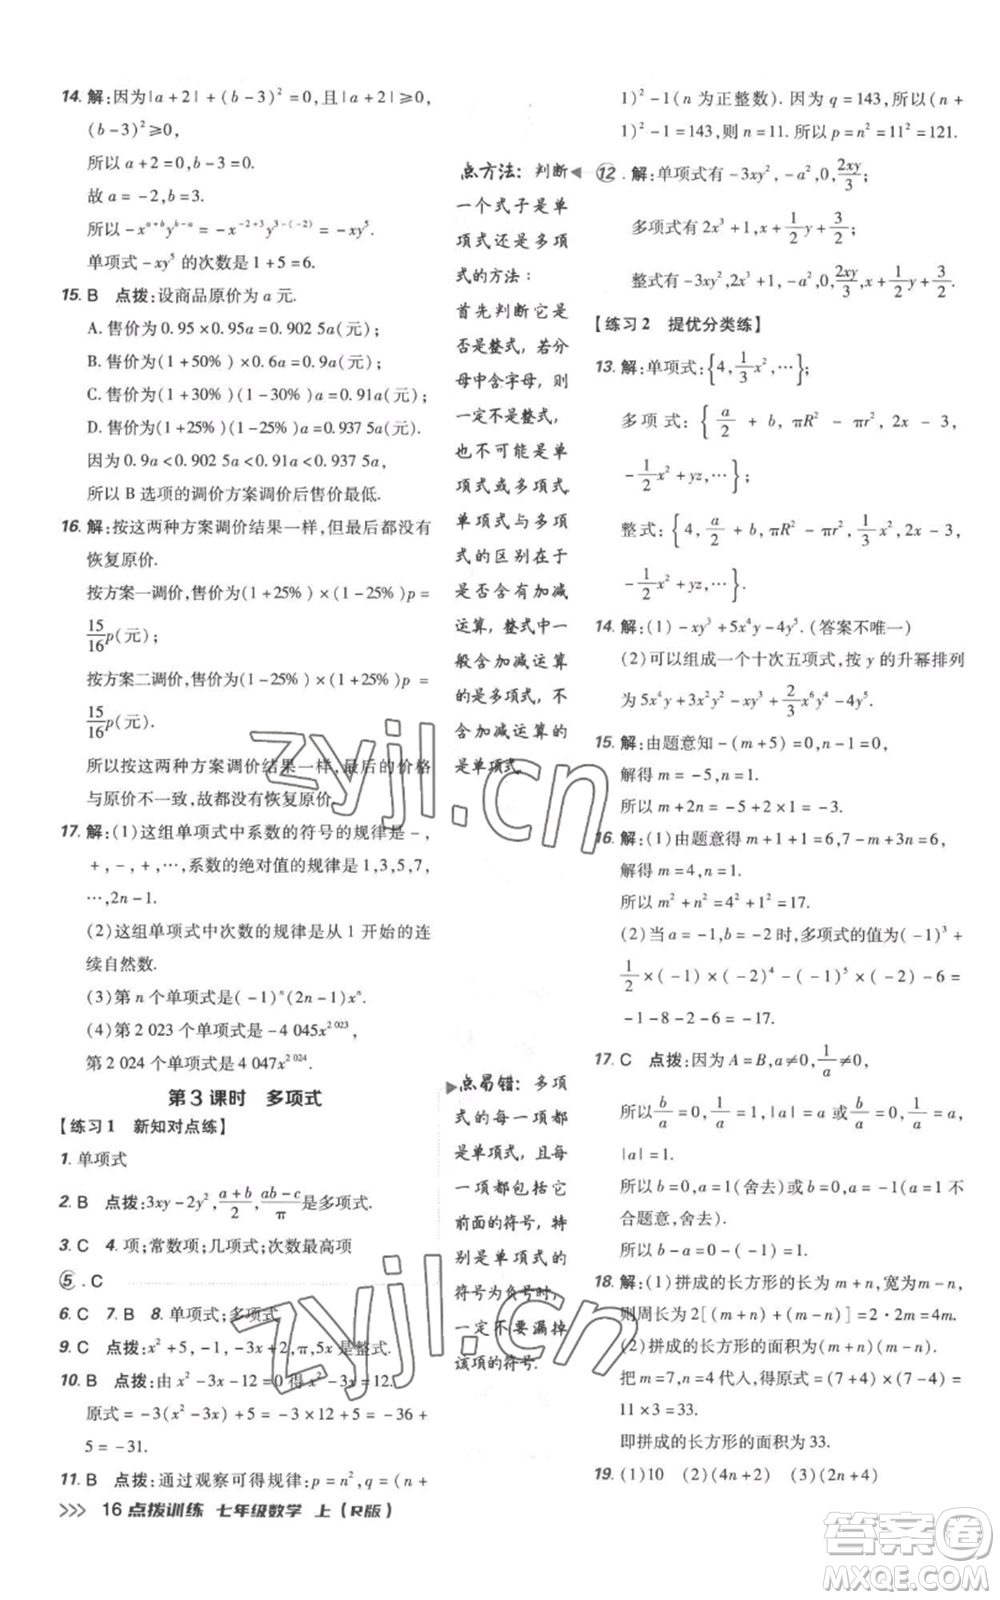 14. 解:因为|a+2|+(b-3)²=0,且|a+2|≥0,
(b-3)²≥0,
所以 a+2=0,b-3=0.
故 a=-2,b=3.
所以 -x^{a+b}y^{b-a}=-x^{-2+3}y^{3-(-2)}=-xy⁵.
单项式-xy⁵的次数是1+5=6.
15. B 点拨:设商品原价为 a 元.
A. 售价为 0.95×0.95a=0.902 5a(元);
B. 售价为(1+50%)×0.6a=0.9a(元);
C. 售价为(1+30%)(1-30%)a=0.91a(元);
D. 售价为(1+25%)(1-25%)a=0.937 5a(元).
因为0.9a<0.902 5a<0.91a<0.937 5a,
所以 B 选项的调价方案调价后售价最低.
16. 解:按这两种方案调价结果一样,但最后都没有
恢复原价.
按方案一调价,售价为(1+25%)×(1-25%)p=
15/16 p(元);
按方案二调价,售价为(1-25%)×(1+25%)p=
15/16 p(元).
所以按这两种方案调价结果一样,最后的价格
与原价不一致,故都没有恢复原价.
17. 解:(1)这组单项式中系数的符号的规律是-,
+,-,+,…,系数的绝对值的规律是1,3,5,7,
…,2n-1.
(2)这组单项式中次数的规律是从1开始的连
续自然数.
(3)第 n 个单项式是(-1)ⁿ(2n-1)xⁿ.
(4)第 2 023 个单项式是-4 045x^{2 023},
第 2 024 个单项式是 4 047x^{2 024}.
第3课时 多项式
【练习1 新知对点练】
1. 单项式
2. B 点拨:3xy-2y²,(a+b)/2,(ab-c)/π是多项式.
3. C 4. 项;常数项;几项式;次数最高项
⑤. C
6. C 7. B 8. 单项式;多项式
9. C 点拨:x²+5,-1,-3x+2,π,5x是整式.
10. B 点拨:由 x²-3x-12=0 得 x²-3x=12.
原式=-3(x²-3x)+5=-3×12+5=-36+
5=-31.
11. B 点拨:通过观察可得规律:p=n²,q=(n+
>>> 16 点拨训练 七年级数学 上(R版)
点方法:判断
一个式子是单
项式还是多项
式的方法:
首先判断它是
否是整式,若分
母中含字母,则
一定不是整式,
也不可能是单
项式或多项式.
单项式与多项
式的区别在于
是否含有加减
运算,整式中一
般含加减运算
的是多项式,不
含加减运算的
是单项式.
点易错:多项
式的每一项都
是单项式,且每
一项都包括它
前面的符号,特
别是单项式的
符号为负号时,
一定不要漏掉
该项的符号.
1)²-1(n 为正整数).因为 q=143,所以(n+
1)²-1=143,则 n=11.所以 p=n²=11²=121.
⑫. 解:单项式有-3xy²,-a²,0,2xy/3;
多项式有 2x³+1,x+1/2 y+3/2;
整式有-3xy²,2x³+1,-a²,0,2xy/3,x+1/2 y+3/2.
【练习2 提优分类练】
13. 解:单项式:{4,1/3 x²,…};
多项式:{a/2+b,πR²-πr²,2x-3,
-1/2 x²+yz,…};
整式:{4,a/2+b,πR²-πr²,1/3 x²,2x-3,
-1/2 x²+yz,…}.
14. 解:(1)-xy³+5x⁴y-4y⁵.(答案不唯一)
(2)可以组成一个十次五项式,按 y 的升幂排列
为 5x⁴y+3xy²-xy³+2/3 x⁶y⁴-4y⁵.
15. 解:由题意知-(m+5)=0,n-1=0,
解得 m=-5,n=1.
所以 m+2n=-5+2×1=-3.
16. 解:(1)由题意得 m+1+1=6,7-m+3n=6.
解得 m=4,n=1.
所以 m²+n²=4²+1²=17.
(2)当 a=-1,b=-2时,多项式的值为(-1)³+
1/2×(-1)×(-2)⁴-(-1)⁵×(-2)-6=
-1-8-2-6=-17.
17. C 点拨:因为 A=B,a≠0,1/a≠0,
所以b/a=0,1/a=1,|a|=1或b/a=0,b/a=0,1/a=a,
|a|=1.
所以 b=0,a=1(舍去)或 b=0,a=-1(a=1不
合题意,舍去).
所以 b-a=0-(-1)=1.
18. 解:(1)拼成的长方形的长为 m+n,宽为 m-n,
则周长为 2[(m+n)+(m-n)]=2·2m=4m.
(2)拼成的长方形的面积为(m+n)(m-n).
把 m=7,n=4 代入,得(7+4)×(7-4)=
11×3=33.
即拼成的长方形的面积为33.
19. (1)10 (2)(4n+2) (3)(2n+4)
zyjl.cn
zyjl.cn
答案圈
MXQE.COM